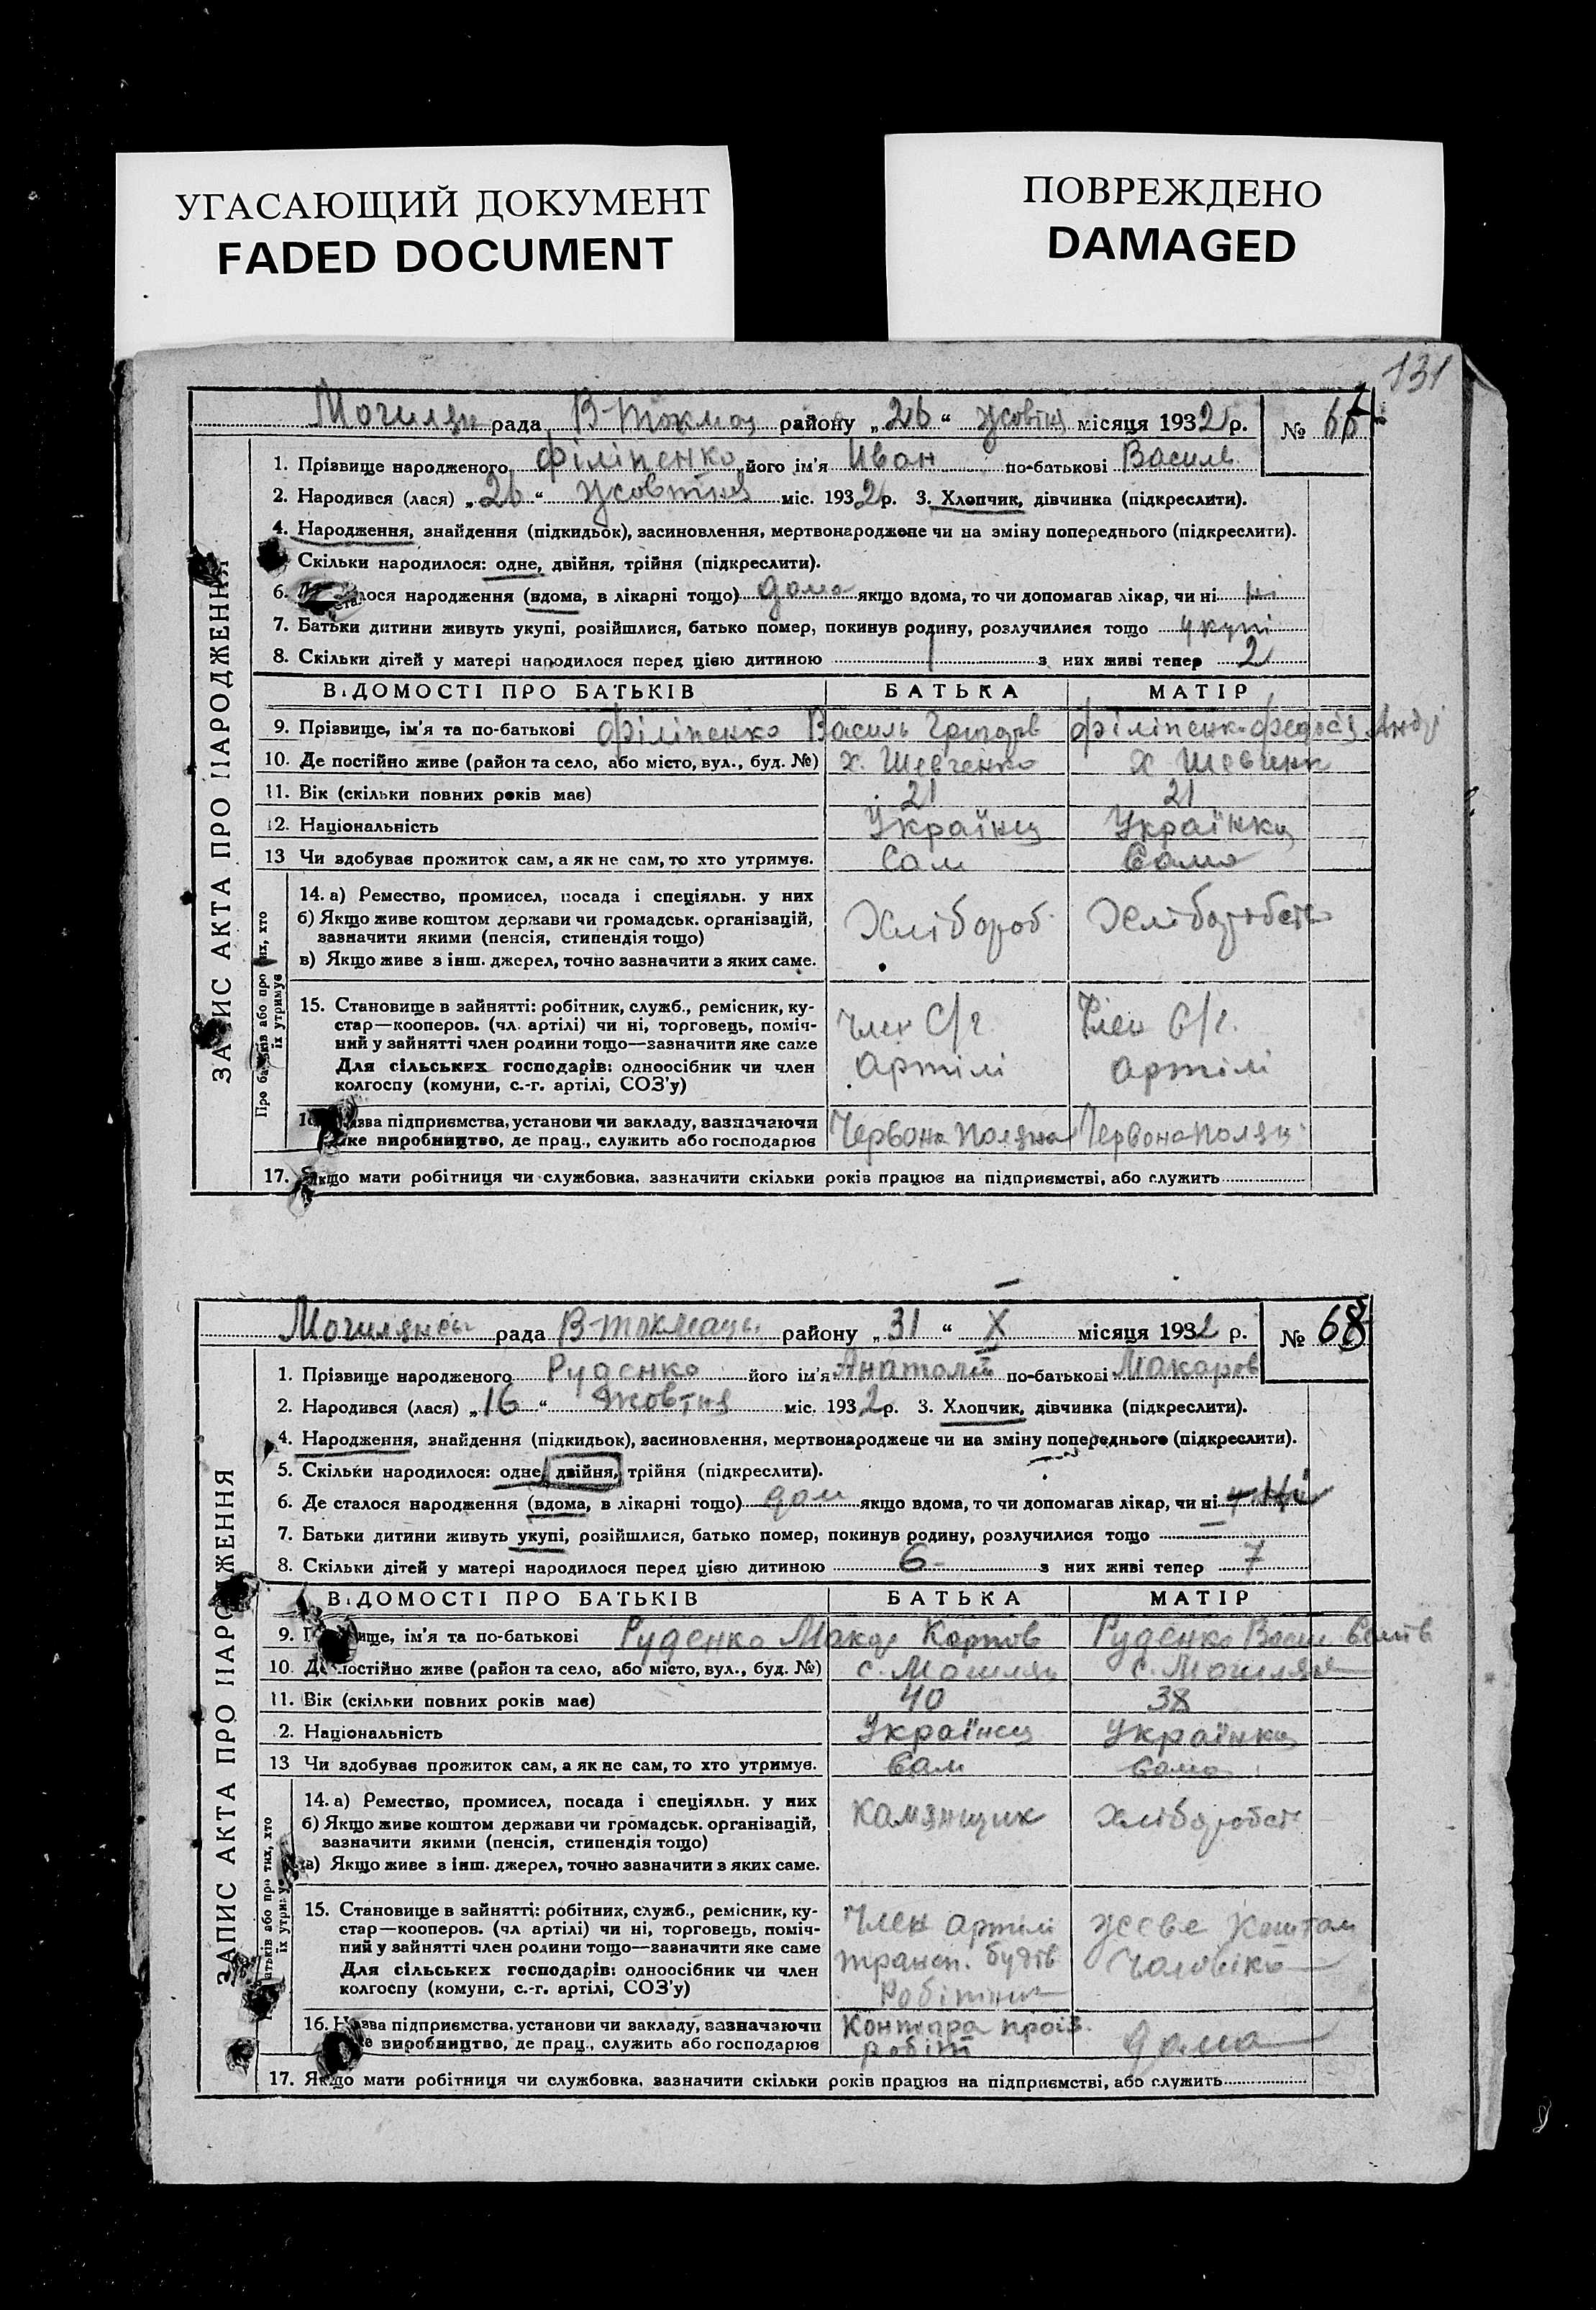 УГАСАЮЩИЙ ДОКУМЕНТ
FADED DOCUMENT
ПОВРЕЖДЕНО
DAMAGED
131
рада В-Токмац району „26“ жовтня місяця 1932 р. №
ЗАПИС АКТА ПРО НАРОДЖЕННЯ
1. Прізвище народженого Філіпенко його ім'я Иван по-батькові Василь
2. Народився (лася) „26“ жовтня міс. 1932 р. 3. Хлопчик, дівчинка (підкреслити).
4. Народження, знайдення (підкидьок), засиновлення, мертвонароджене чи на зміну попереднього (підкреслити).
Скільки народилося: одне, двійня, трійня (підкреслити).
6. сталося народження (вдома, в лікарні тощо) дома якщо вдома, то чи допомагав лікар, чи ні ні
7. Батьки дитини живуть укупі, розійшлися, батько помер, покинув родину, розлучилися тощо укупі
8. Скільки дітей у матері народилося перед цією дитиною 1 з них живі тепер 2
ВІДОМОСТІ ПРО БАТЬКІВ БАТЬКА МАТІР
9. Прізвище, ім'я та по-батькові Філіпенко Василь Григорв Філіпенк Федосія Анді
10. Де постійно живе (район та село, або місто, вул., буд. №) х. Шевченко х Шевченк
11. Вік (скільки повних років має) 21 21
12. Національність Українец Українка
13 Чи здобуває прожиток сам, а як не сам, то хто утримує. Сам Сама
Про батьків або про тих, хто їх утримує
14. а) Ремество, промисел, посада і спеціяльн. у них
б) Якщо живе коштом держави чи громадськ. організацій,
зазначити якими (пенсія, стипендія тощо) Хлібороб
в) Якщо живе з інш. джерел, точно зазначити з яких саме.
15. Становище в зайнятті: робітник, служб., ремісник, ку-
стар—кооперов. (чл. артілі) чи ні, торговець, поміч- Член С/г. Член С/г.
ний у зайнятті член родини тощо—зазначити яке саме
Для сільських господарів: одноосібник чи член артілі артілі
колгоспу (комуни, с.-г. артілі, СОЗ'у)
зва підприємства, установи чи закладу, зазначаючи
яке виробництво, де прац., служить або господарює Червона Поляна Червона Поляц
17. Якщо мати робітниця чи службовка, зазначити скільки років працює на підприємстві, або служить
рада району „31“ X місяця 1932 р. № 68
ЗАПИС АКТА ПРО НАРОДЖЕННЯ
1. Прізвище народженого Руденко його ім'я Анатолій по-батькові Макаров
2. Народився (лася) „16“ Жовтня міс. 1932 р. 3. Хлопчик, дівчинка (підкреслити).
4. Народження, знайдення (підкидьок), засиновлення, мертвонароджене чи на зміну попереднього (підкреслити).
5. Скільки народилося: одне, двійня, трійня (підкреслити).
6. Де сталося народження (вдома, в лікарні тощо) дом якщо вдома, то чи допомагав лікар, чи ні Ні
7. Батьки дитини живуть укупі, розійшлися, батько помер, покинув родину, розлучилися тощо
8. Скільки дітей у матері народилося перед цією дитиною 6 з них живі тепер 7
ВІДОМОСТІ ПРО БАТЬКІВ БАТЬКА МАТІР
9. ище, ім'я та по-батькові Руденко Макар Карпов Руденко
10. Де постійно живе (район та село, або місто, вул., буд. №) с. Могиляц с. Могиляи
11. Вік (скільки повних років має) 40 38
2. Національність Українец Українка
13 Чи здобуває прожиток сам, а як не сам, то хто утримує. Сам Сама
14. а) Ремество, промисел, посада і спеціяльн. у них Камянщик Хліборобст
б) Якщо живе коштом держави чи громадськ. організацій,
зазначити якими (пенсія, стипендія тощо)
в) Якщо живе з інш. джерел, точно зазначити з яких саме.
15. Становище в зайнятті: робітник, служб., ремісник, ку-
стар—кооперов. (чл артілі) чи ні, торговець, поміч- Член артілі Коштом
ний у зайнятті член родини тощо—зазначити яке саме трансп. будів Чоловіка
Для сільських господарів: одноосібник чи член
колгоспу (комуни, с.-г. артілі, СОЗ'у) Робітник
16. Назва підприємства, установи чи закладу, зазначаючи Контора произ.
е виробництво, де прац., служить або господарює робіт дома
17. Якщо мати робітниця чи службовка, зазначити скільки років працює на підприємстві, або служить